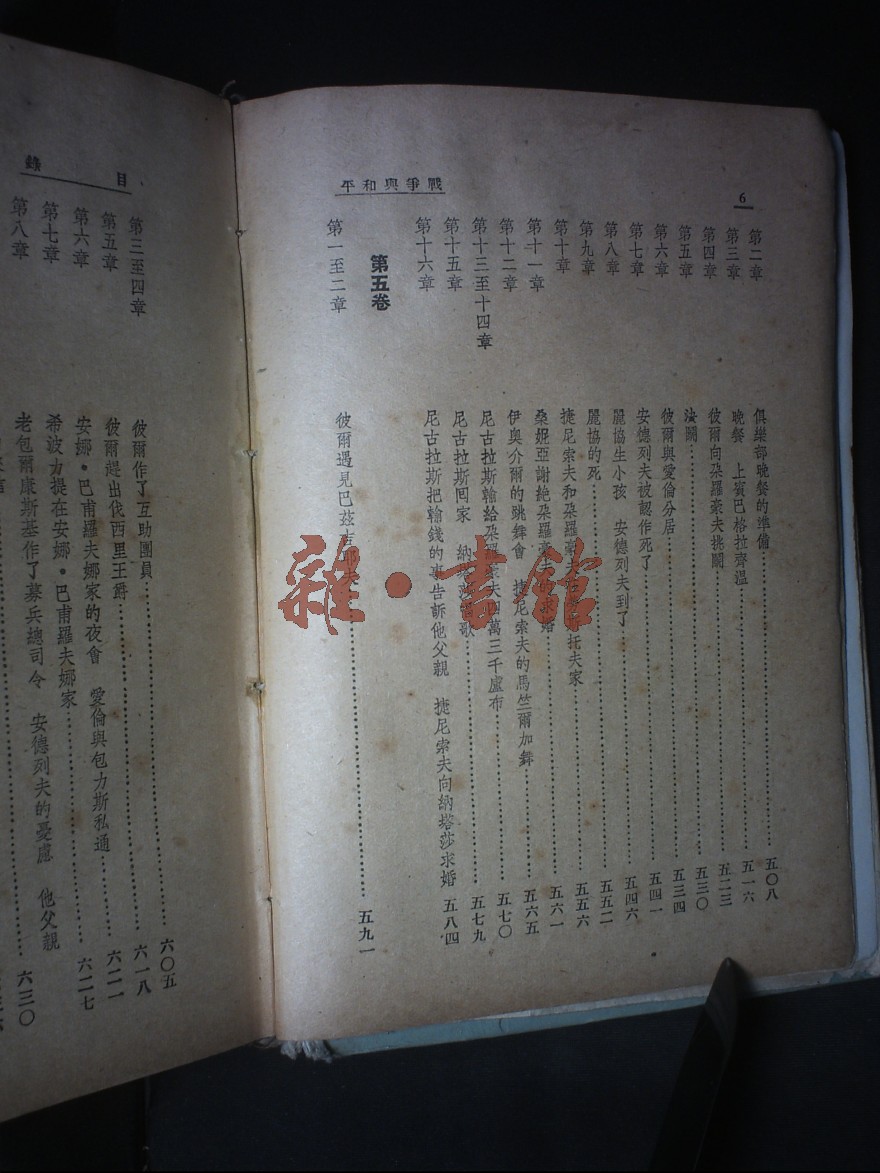 戰爭與和平
6
第二章 俱樂部晚餐的準備 五〇八
第三章 晚餐 上賓巴格拉齊溫 五一六
第四章 彼爾向朶羅豪夫挑鬭 五二三
第五章 決鬭 五三〇
第六章 彼爾與愛倫分居 五三四
第七章 安德列夫被認作死了 五四一
第八章 麗協生小孩 安德列夫到了 五四六
第九章 麗協的死 五五二
第十章 捷尼索夫和朶羅豪夫 托夫家 五五六
第十一章 桑妮亞謝絶朶羅豪夫求婚 五六一
第十二章 伊奧介爾的跳舞會 捷尼索夫的馬竺爾加舞 五六五
第十三至十四章 尼古拉斯輸給朶羅豪夫四萬三千盧布 五七〇
第十五章 尼古拉斯囘家 納塔莎唱歌 五七九
第十六章 尼古拉斯把輸錢的事告訴他父親 捷尼索夫向納塔莎求婚 五八四
第五卷
第一至二章 彼爾遇見巴茲 五九一
目錄
第三至四章 彼爾作了互助團員 六〇五
第五章 彼爾趕出伐西里王爵 六一八
第六章 安娜・巴甫羅夫娜家的夜會 愛倫與包力斯私通 六二一
第七章 希波力提在安娜・巴甫羅夫娜家 六二七
第八章 老包爾康斯基作了募兵總司令 安德列夫的憂慮 他父親
六三〇
雜・書館